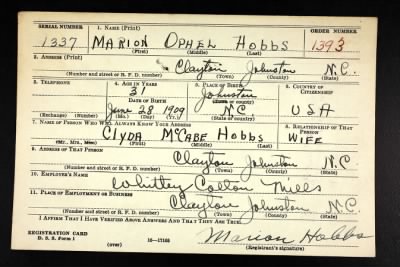 SERIAL NUMBER 1. NAME (Print) ORDER NUMBER
1337 MARION OPHEL HOBBS 1393
(First) (Middle) (Last)
2. ADDRESS (Print)
Clayton Johnston N.C.
(Number and street or R. F. D. number) (Town) (County) (State)
3. TELEPHONE 4. AGE IN YEARS 5. PLACE OF BIRTH 6. COUNTRY OF CITIZENSHIP
31 Johnston
DATE OF BIRTH (Town or county)
June 28 1909 N.C. USA
(Exchange) (Number) (Mo.) (Day) (Yr.) (State or country)
7. NAME OF PERSON WHO WILL ALWAYS KNOW YOUR ADDRESS 8. RELATIONSHIP OF THAT PERSON
CLYDA McCABE HOBBS WIFE
(Mr., Mrs., Miss) (First) (Middle) (Last)
9. ADDRESS OF THAT PERSON
Clayton Johnston N.C
(Number and street or R. F. D. number) (Town) (County) (State)
10. EMPLOYER'S NAME
Cotton Mills
11. PLACE OF EMPLOYMENT OR BUSINESS
Clayton Johnston N.C.
(Number and street or R. F. D. number) (Town) (County) (State)
I AFFIRM THAT I HAVE VERIFIED ABOVE ANSWERS AND THAT THEY ARE TRUE.
REGISTRATION CARD
D. S. S. Form 1 (over) 16-17105 Marion Hobbs
(Registrant's signature)